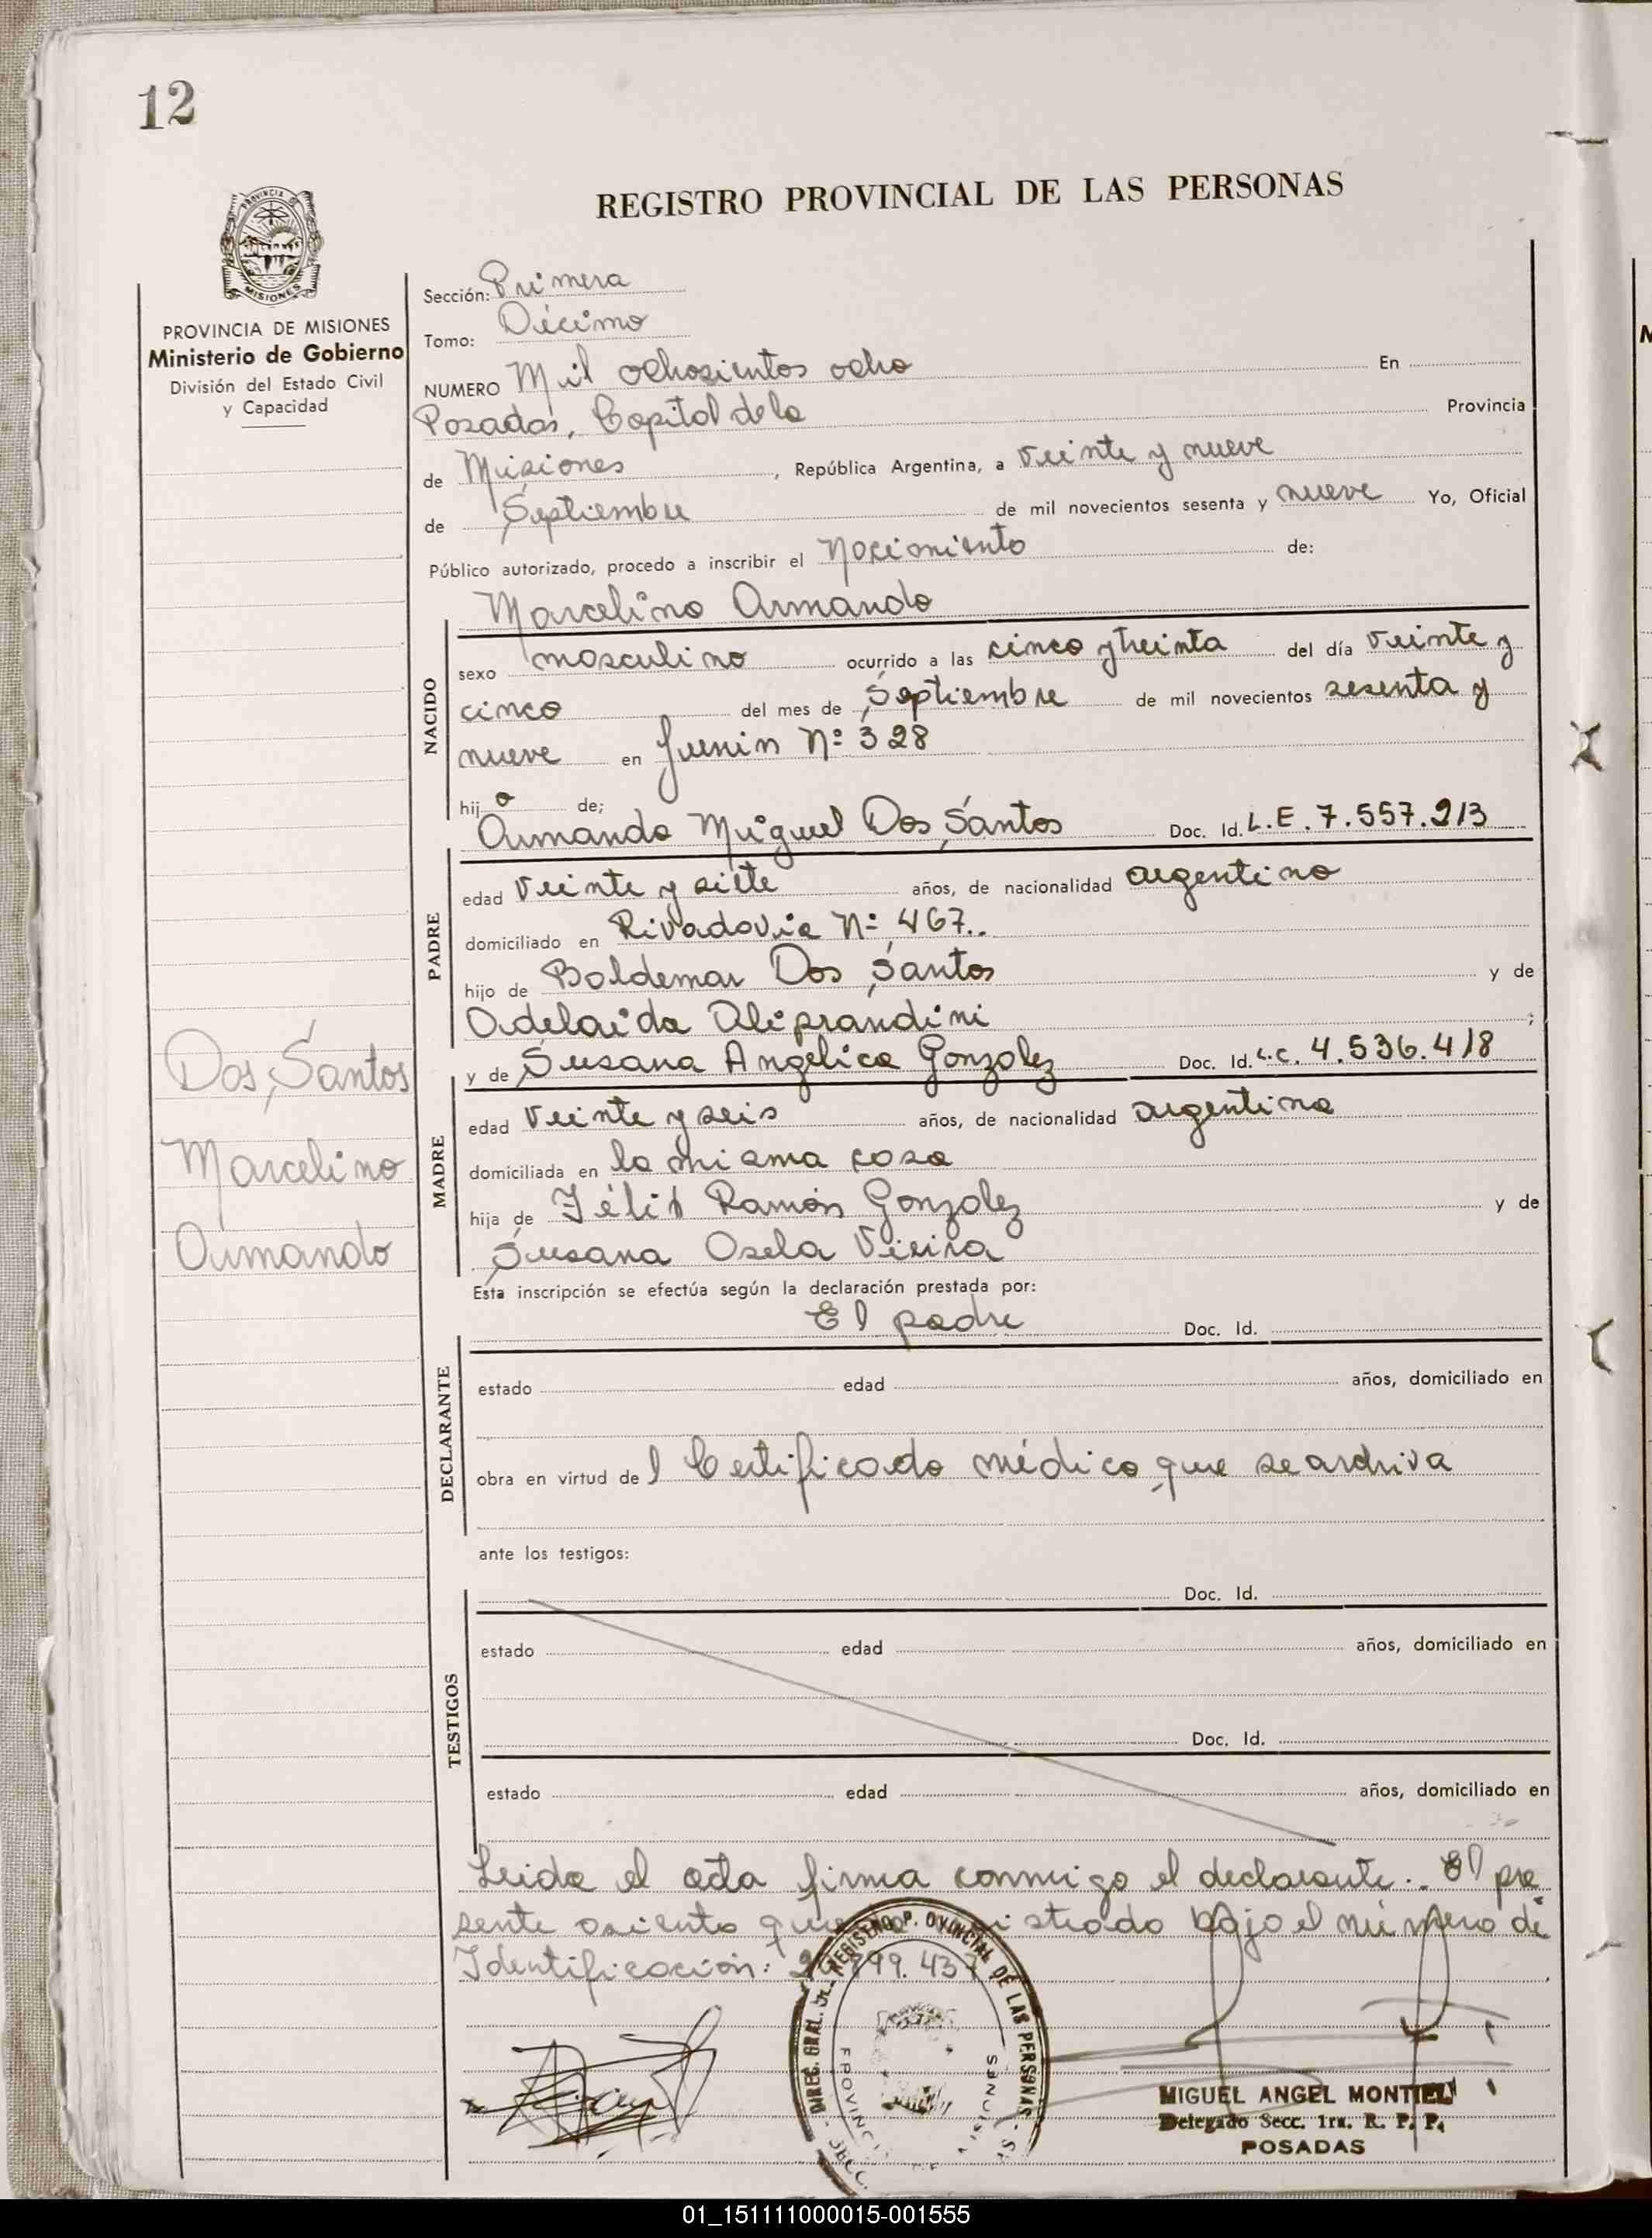 12
REGISTRO PROVINCIAL DE LAS PERSONAS
PROVINCIA
MISIONES
PROVINCIA DE MISIONES
Ministerio de Gobierno
División del Estado Civil
y Capacidad
Sección: Primera
Tomo: Décimo
NUMERO Mil ochosientos ocho En
Posadas, Capital de la Provincia
de Misiones, República Argentina, a veinte y nueve
de Septiembre de mil novecientos sesenta y nueve Yo, Oficial
Público autorizado, procedo a inscribir el nacimiento de:
Marcelino Armando
NACIDO
sexo masculino ocurrido a las cinco y treinta del día veinte y
cinco del mes de Septiembre de mil novecientos sesenta y
nueve en Junin Nº 328
hijo de;
Armando Miguel Dos Santos Doc. Id. L.E. 7.557.213
PADRE
edad veinte y siete años, de nacionalidad argentino
domiciliado en Rivadavia Nº 467..
hijo de Boldemar Dos Santos y de
Adelaida Aliprandini ;
y de Susana Angélica Gonzalez Doc. Id. L.C. 4.536.418
MADRE
edad veinte y seis años, de nacionalidad argentina
domiciliada en la misma casa
hija de Félix Ramón Gonzalez y de
Susana Osela Vieira
Dos Santos
Marcelino
Armando
Esta inscripción se efectúa según la declaración prestada por:
El padre Doc. Id.
DECLARANTE
estado edad años, domiciliado en
obra en virtud del Certificado médico que se archiva
ante los testigos:
Doc. Id.
TESTIGOS
estado edad años, domiciliado en
Doc. Id.
estado edad años, domiciliado en
Leida el acta firma conmigo el declarante.. El pre
sente asiento bajo el número de
Identificación: 899.437
DIREC. GRAL. REGISTRO PROVINCIAL DE LAS PERSONAS
MIGUEL ANGEL MONTIEL
Delegado Secc. 1ra. R. P. P.
POSADAS
01_151111000015-001555